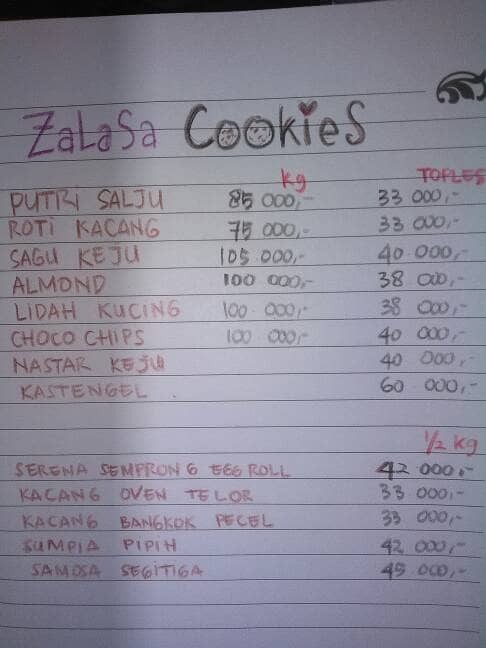 ZaLaSa CookieS
kg TOPLES
PUTRI SALJU 85 000,- 33 000,-
ROTI KACANG 75 000,- 33 000,-
SAGU KEJU 105 000,- 40 000,-
ALMOND 100 000,- 38 000,-
LIDAH KUCING 100 000,- 38 000,-
CHOCO CHIPS 100 000,- 40 000,-
NASTAR KEJU 40 000,-
KASTENGEL 60 000,-
1/2 kg
SERENA SEMPRONG EGG ROLL 42 000,-
KACANG OVEN TELOR 33 000,-
KACANG BANGKOK PECEL 33 000,-
SUMPIA PIPIH 42 000,-
SAMOSA SEGITIGA 45 000,-